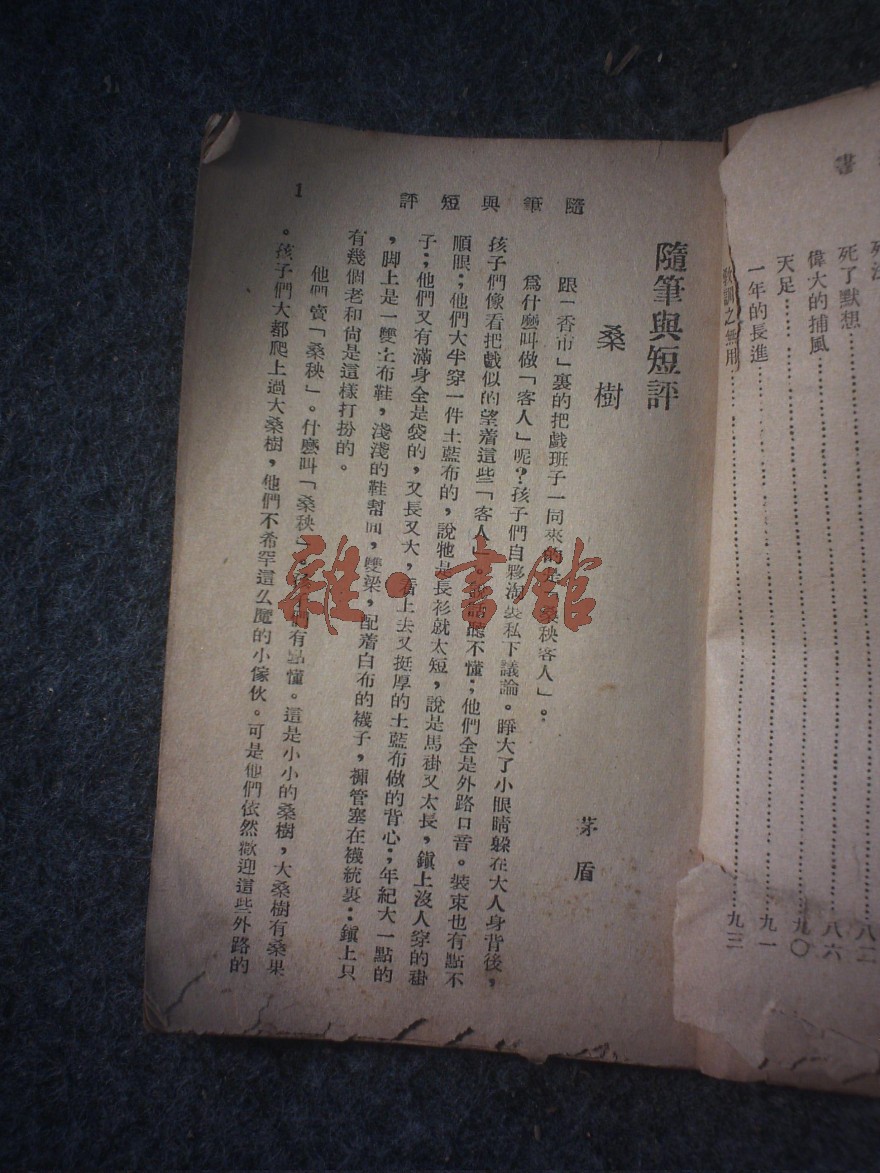 書
死法
死了默想……八二
偉大的捕風……八六
天足……九〇
一年的長進……九一
教訓之無用……九三
隨筆與短評
1
隨筆與短評
桑樹
茅盾
跟「香市」裏的把戲班子一同來的是「桑秧客人」。
爲什麽叫做「客人」呢?孩子們自夥淘裏私下議論。睜大了小眼睛躲在大人身背後,
孩子們像看把戲似的望着這些「客人」。說話聽不懂;他們全是外路口音。裝束也有點不
順眼;他們大半穿一件土藍布的,說牠是長衫就太短,說是馬褂又太長,鎮上沒人穿的褂
子;他們又有滿身全是袋的,又長又大,看上去又挺厚的土藍布做的背心;年紀大一點的
,脚上是一雙土布鞋,淺淺的鞋幫面,雙梁,配着白布的襪子,褲管塞在襪統裏:鎮上只
有幾個老和尙是這樣打扮的。
他們賣「桑秧」。什麽叫「桑秧」,孩子們有點懂。這是小小的桑樹,大桑樹有桑果
。孩子們大都爬上過大桑樹,他們不希罕這么魔的小傢伙。可是他們依然歡迎這些外路的
雜·書館